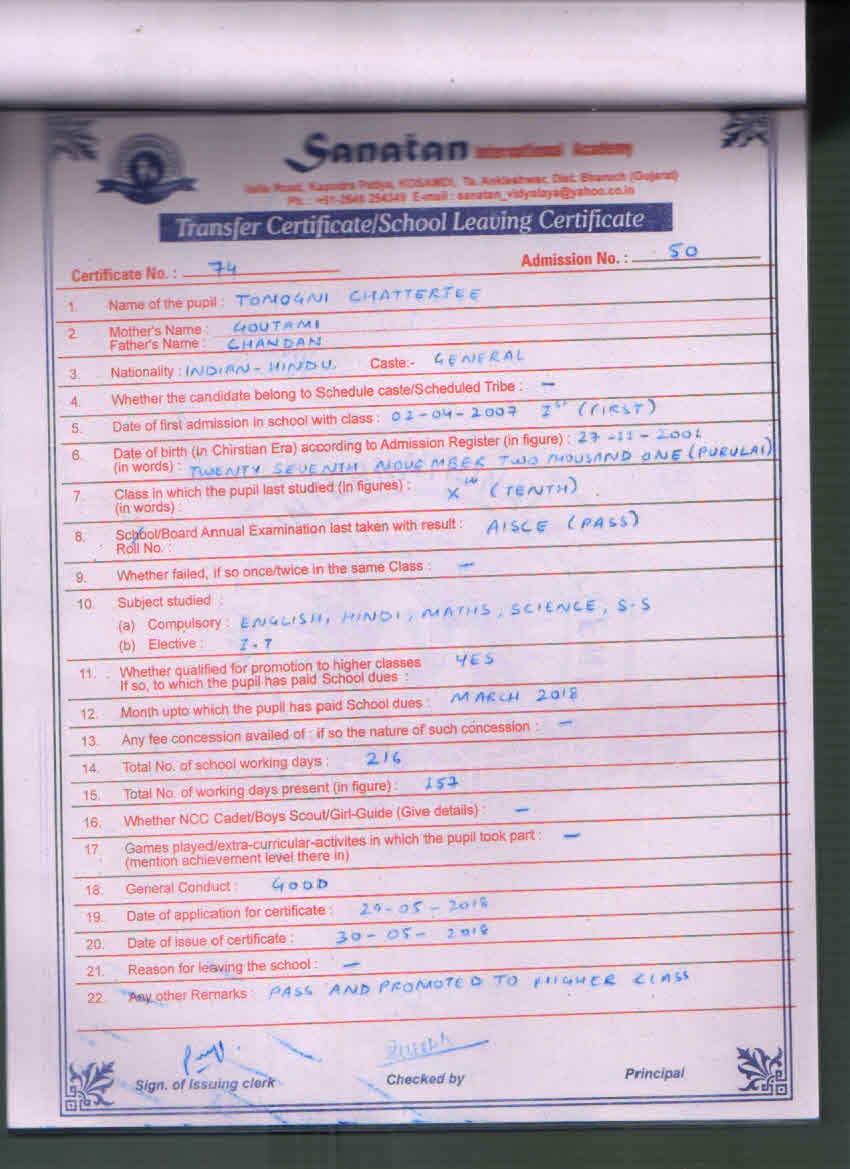 Sanatan International Academy
Valia Road, Kapodra Patiya, KOSAMDI, Ta. Ankleshwar, Dist. Bharuch (Gujarat)
Ph.: +91-2646 254349 E-mail : sanatan_vidyalaya@yahoo.co.in
Transfer Certificate/School Leaving Certificate
Certificate No. : 74 Admission No. : 50
1. Name of the pupil : TOMOGNI CHATTERTEE
2. Mother's Name : GOUTAMI
Father's Name : CHANDAN
3. Nationality : INDIAN - HINDU. Caste:- GENERAL
4. Whether the candidate belong to Schedule caste/Scheduled Tribe : –
5. Date of first admission in school with class : 02-04-2007 Ist (FIRST)
6. Date of birth (in Chirstian Era) according to Admission Register (in figure) : 27-11-2001
(in words) : TWENTY SEVENTH NOVEMBER TWO THOUSAND ONE (PURULAI)
7. Class in which the pupil last studied (in figures) : Xth (TENTH)
(in words) :
8. School/Board Annual Examination last taken with result : AISCE (PASS)
Roll No. :
9. Whether failed, if so once/twice in the same Class : –
10. Subject studied :
(a) Compulsory : ENGLISH, HINDI, MATHS, SCIENCE, S.S
(b) Elective : I.T
11. Whether qualified for promotion to higher classes YES
If so, to which the pupil has paid School dues :
12. Month upto which the pupil has paid School dues : MARCH 2018
13. Any fee concession availed of : if so the nature of such concession : –
14. Total No. of school working days : 216
15. Total No. of working days present (in figure) : 157
16. Whether NCC Cadet/Boys Scout/Girl-Guide (Give details) : –
17. Games played/extra-curricular-activites in which the pupil took part : –
(mention achievement level there in)
18. General Conduct : GOOD
19. Date of application for certificate : 29-05-2018
20. Date of issue of certificate : 30-05-2018
21. Reason for leaving the school : –
22. Any other Remarks : PASS AND PROMOTED TO HIGHER CLASS
Sign. of Issuing clerk Checked by Principal